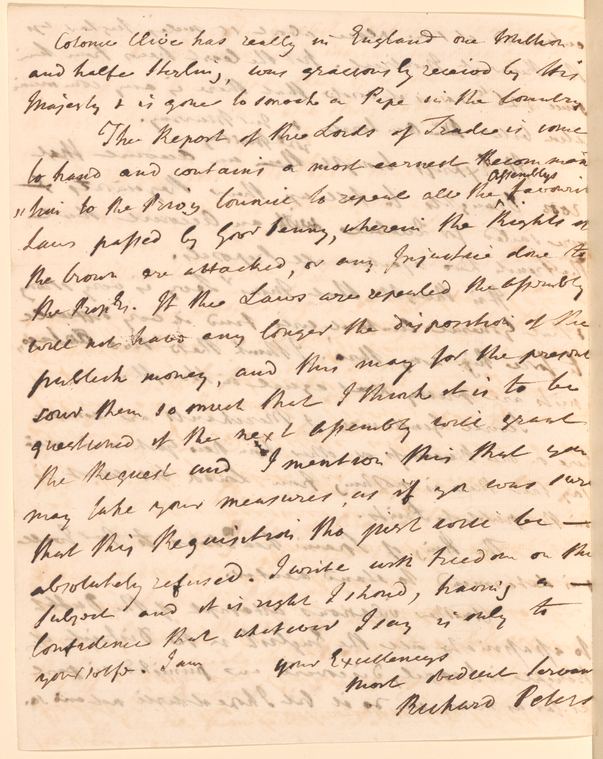 Colonel Clive has really in England one Million
and halfe Sterling, was graciously received by His
Majesty & is gone to smoak a Pipe in the Country
The Report of the Lords of Trade is come
to hand and contains a most earnest Recommen
Assemblys
"tion to the Privy Council to repeal all the ^ favourit
Laws passed by Govr Denny, wherein the Rights of
the Crown are attacked, or any Injustice done to
the Proprs. If the Laws are repealed the Assembly
will not have any longer the disposition of the
publick money, and this may for the present
sour them so much that I think it is to be
questioned if the next Assembly will grant
the Request and I mention this that you
may take your measures, as if you was sure
that this Requisition tho just will be —
absolutely refused. I write with freedom on this
Subject and it is right I shoud, having a —
Confidence that whatever I say is only to
your selfe. I am your Excellencys
most obedient Servan
Richard Peters